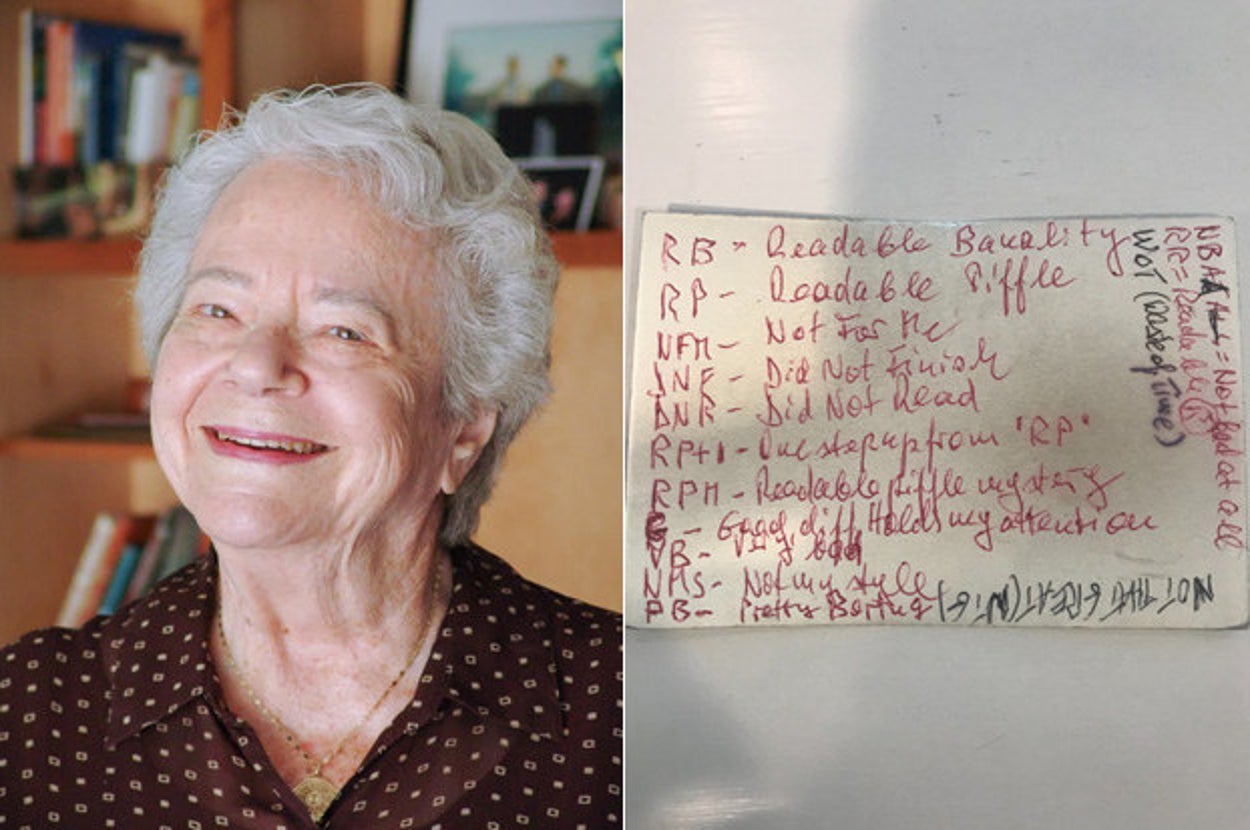 RB - Readable Banality
RP - Readable Piffle
NFM - Not For Me
DNF - Did Not Finish
DNR - Did Not Read
RP+1 - One step up from 'RP'
RPM - Readable piffle mystery
G - Good, diff, Holds my attention
VB - Very bad
NMS - Not my style
PB - Pretty Boring
WOT (Waste of Time)
RR = Readable
NBAA = Not bad at all
NOT THAT GREAT (NTG)